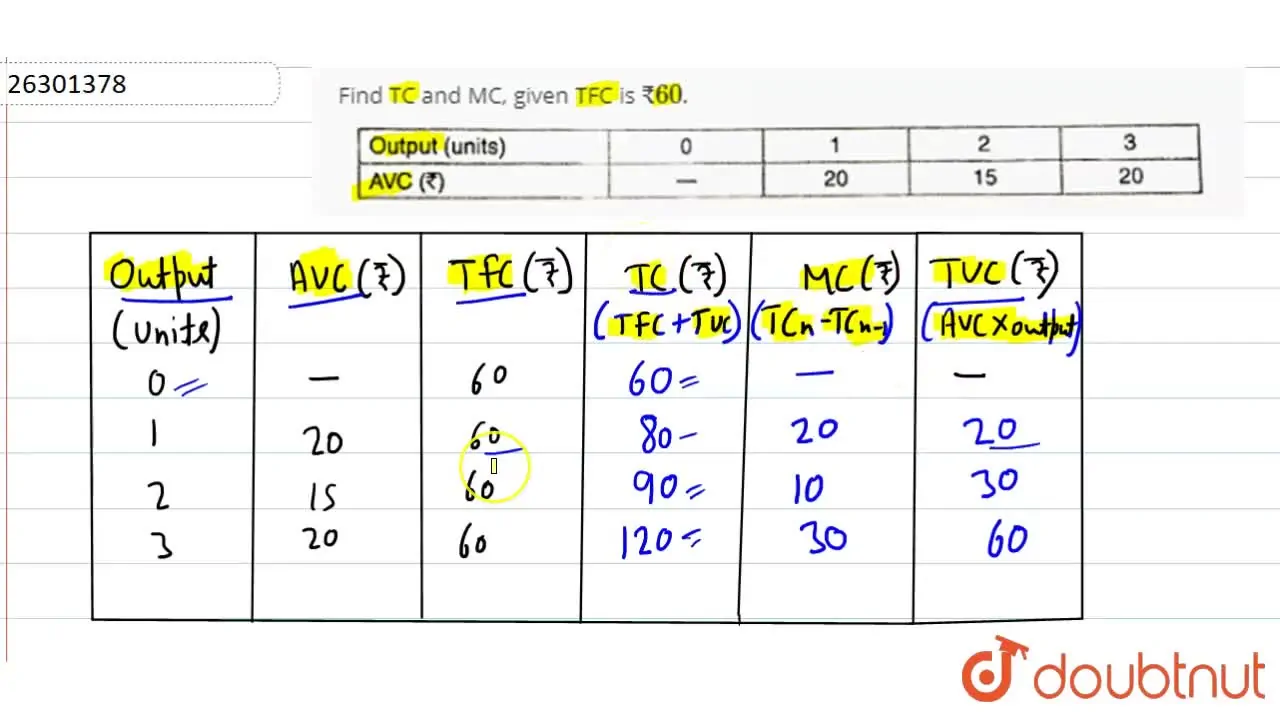 26301378
Find TC and MC, given TFC is ₹60.
Output (units) 0 1 2 3
AVC (₹) — 20 15 20
Output AVC (₹) TfC (₹) TC (₹) MC (₹) TVC (₹)
(Units) (TFC + TVC) (TCn - TCn-1) (AVC x output)
0 = — 60 60 = — —
1 20 60 80 - 20 20
2 15 60 90 = 10 30
3 20 60 120 = 30 60
doubtnut